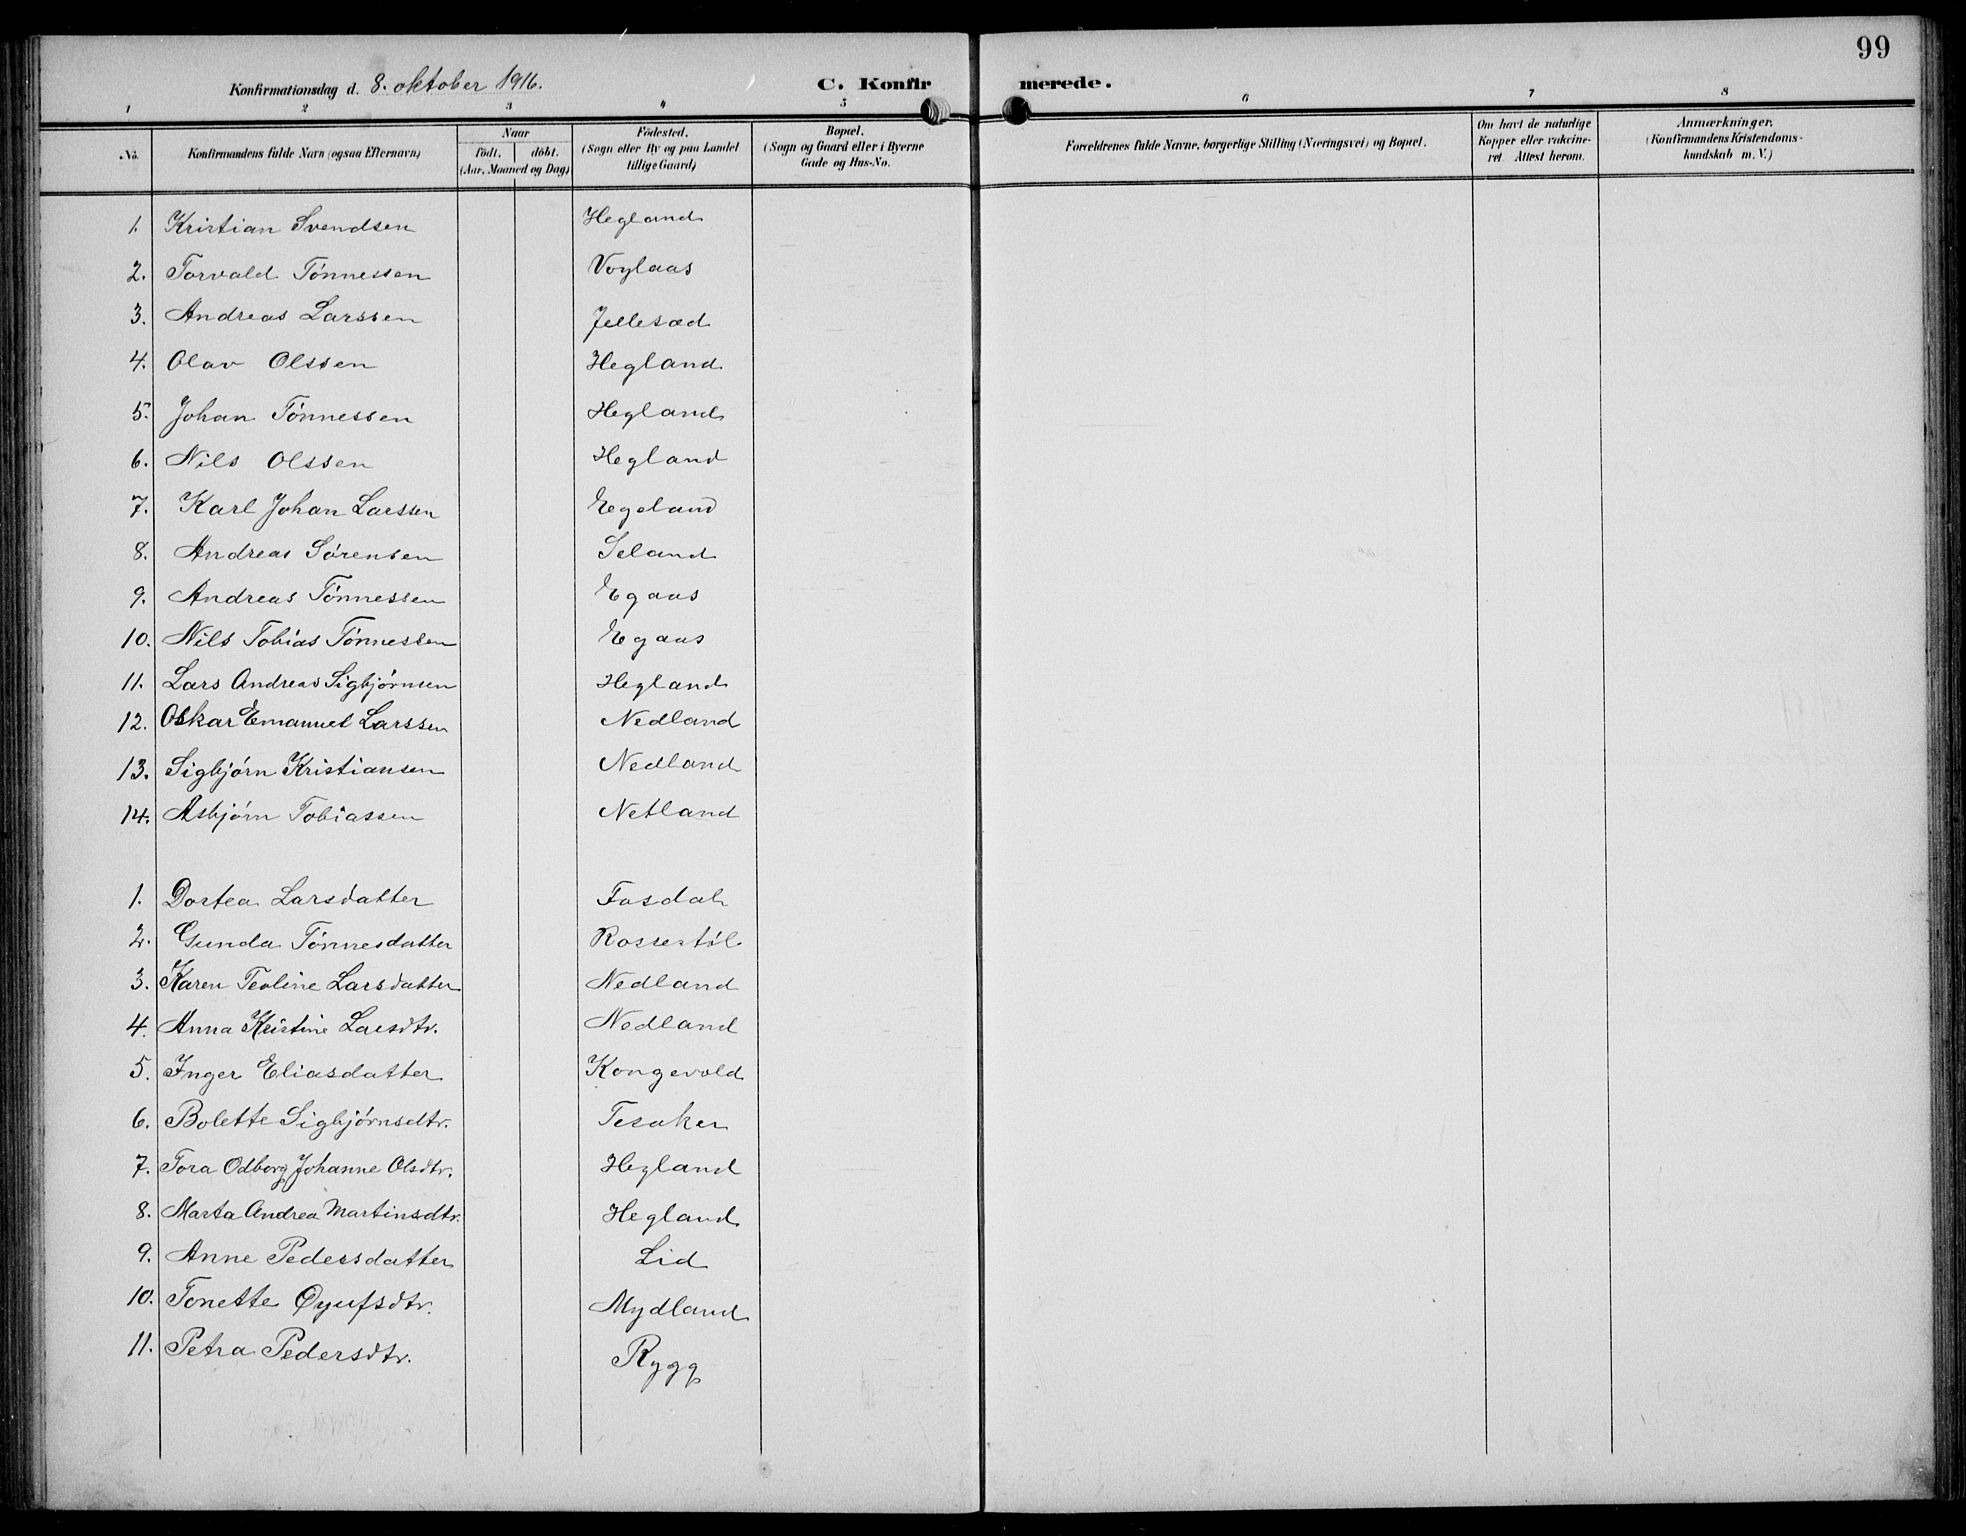 99
Konfirmationsdag d. 8. oktober 1916. C. Konfirmerede.
1 2 3 4 5 6 7 8
No. Konfirmandens fulde Navn (ogsaa Efternavn) Naar født. døbt. (Aar, Maaned og Dag) Fødested. (Sogn eller By og paa Landet tillige Gaard) Bopæl. (Sogn og Gaard eller i Byerne Gade og Hus-No. Forældrenes fulde Navne, borgerlige Stilling (Næringsvei) og Bopæl. Om havt de naturlige Kopper eller vakcineret Attest herom. Anmærkninger. (Konfirmandens Kristendomskundskab m. V.)
1. Kristian Svendsen Hegland
2. Torvald Tønnessen Voglaas
3. Andreas Larssen Jellesæd
4. Olav Olssen Hegland
5. Johan Tønnessen Hegland
6. Nils Olssen Hegland
7. Karl Johan Larssen Egeland
8. Andreas Sørensen Seland
9. Andreas Tønnessen Egaas
10. Nils Tobias Tønnessen Egaas
11. Lars Andreas Sigbjørnsen Hegland
12. Oskar Emanuel Larssen Nedland
13. Sigbjørn Kristiansen Nedland
14. Asbjørn Tobiassen Netland
1. Dortea Larsdatter Fosdal
2. Gunda Tønnesdatter Rossestøl
3. Karen Teoline Larsdatter Nedland
4. Anna Kristine Larsdtr. Nedland
5. Inger Eliasdatter Kongevold
6. Bolette Sigbjørnsdtr. Tesaker
7. Tora Odborg Johanne Olsdtr. Hegland
8. Marta Andrea Martinsdtr. Hegland
9. Anne Pedersdatter Lid
10. Tonette Øyufsdtr. Mydland
11. Petra Pedersdtr. Rygg